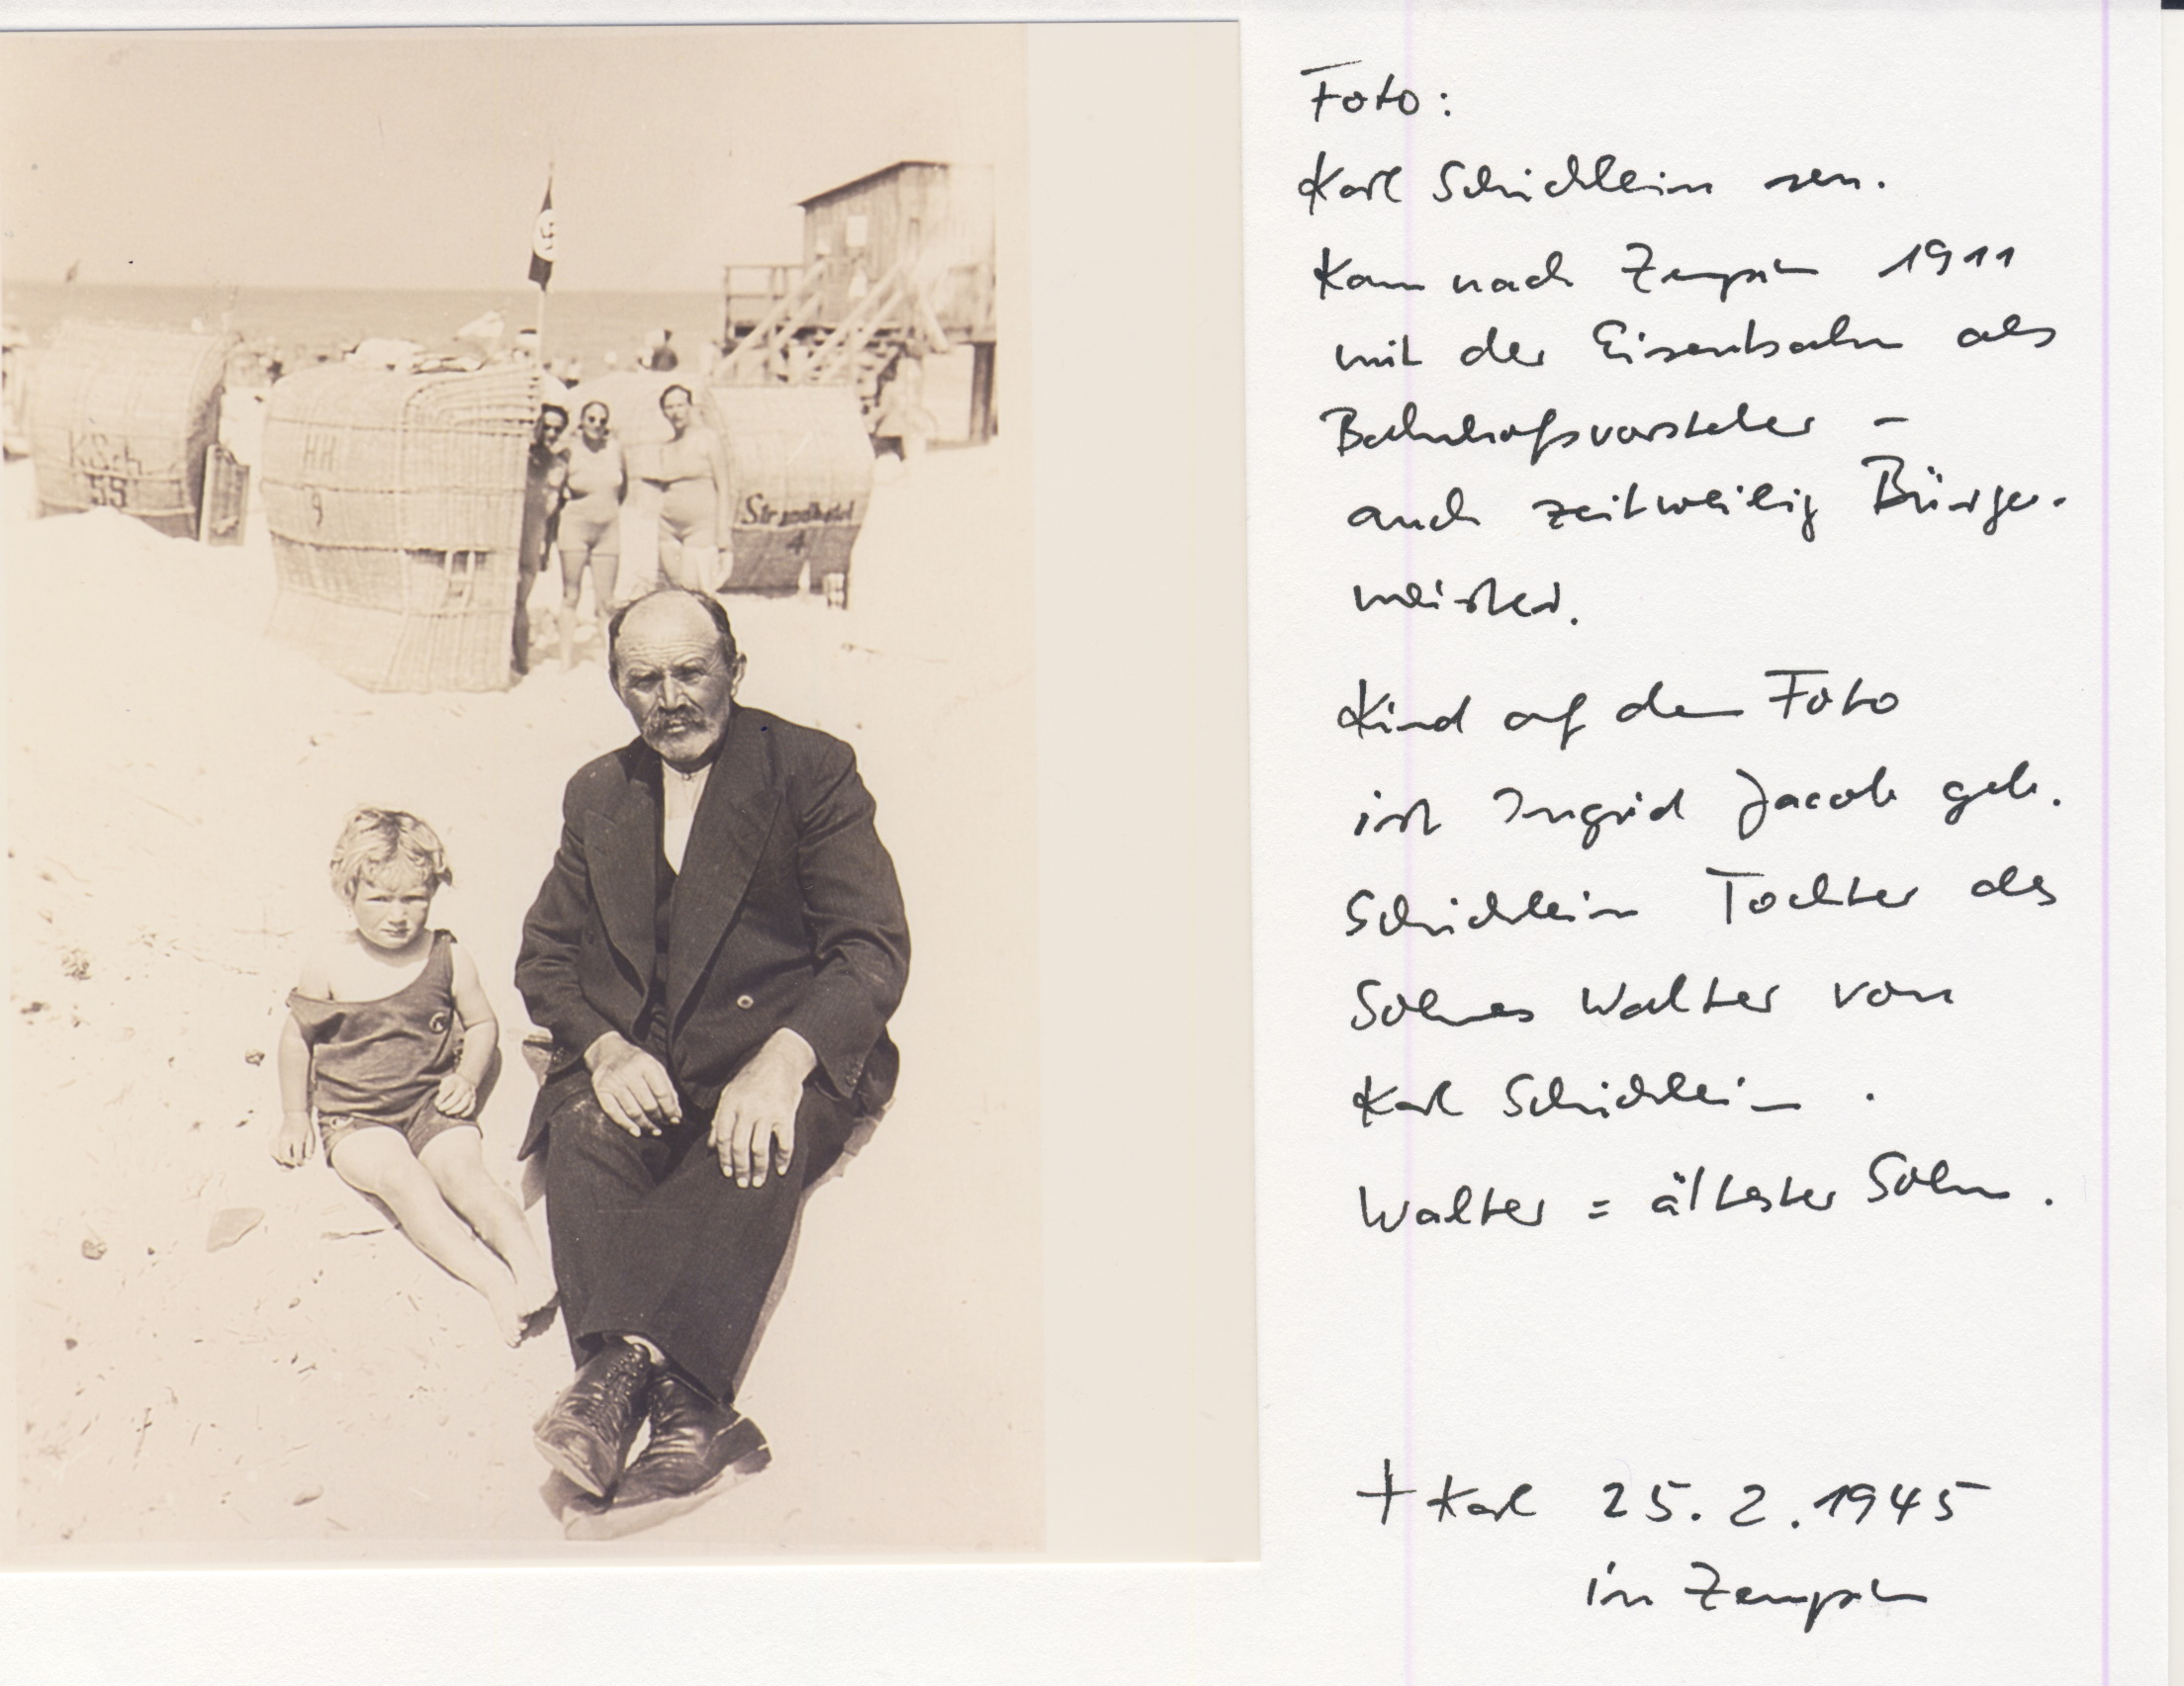 K.Sch.
55
HH
9
Strandhotel
4
Foto:
Karl Schichlein sen.
Kam nach Zempin 1911
mit der Eisenbahn als
Bahnhofsvorsteher –
auch zeitweilig Bürger-
meister.
Kind auf dem Foto
ist Ingrid Jacob geb.
Schichlein Tochter des
Sohnes Walter von
Karl Schichlein .
Walter = ältester Sohn.
† Karl 25.2.1945
in Zempin